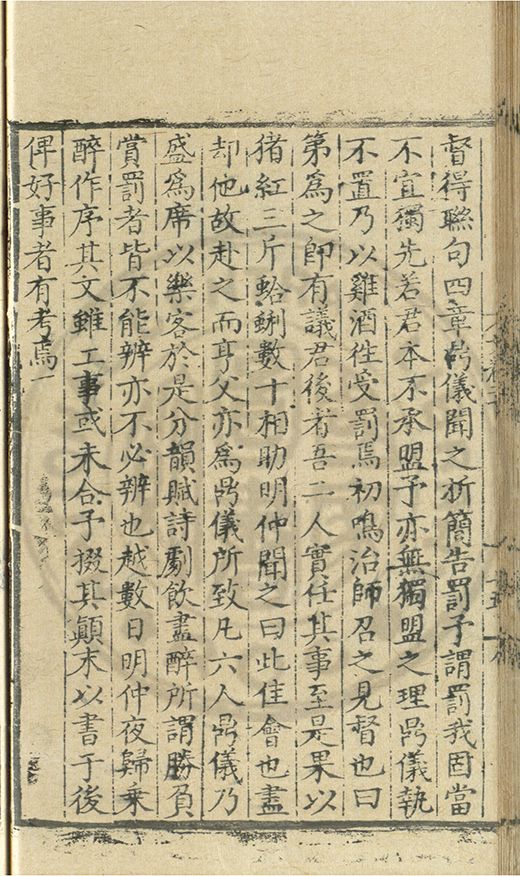 督得聯句四章鼎儀聞之折簡告罰予謂罰我固當
不宜獨先若君本不承盟予亦無獨盟之理鼎儀執
不置乃以雞酒徃受罰焉初鳴治師召之見督也曰
第為之即有議君後者吾二人實任其事至是果以
猪紅三斤蛤蜊數十相助明仲聞之曰此佳會也盡
却他故赴之而亨父亦為鼎儀所致凡六人鼎儀乃
盛為席以樂客於是分韻賦詩劇飲盡醉所謂勝負
賞罰者皆不能辨亦不必辨也越數日明仲夜歸乗
醉作序其文雖工事或未合予掇其顛末以書于後
俾好事者有考焉